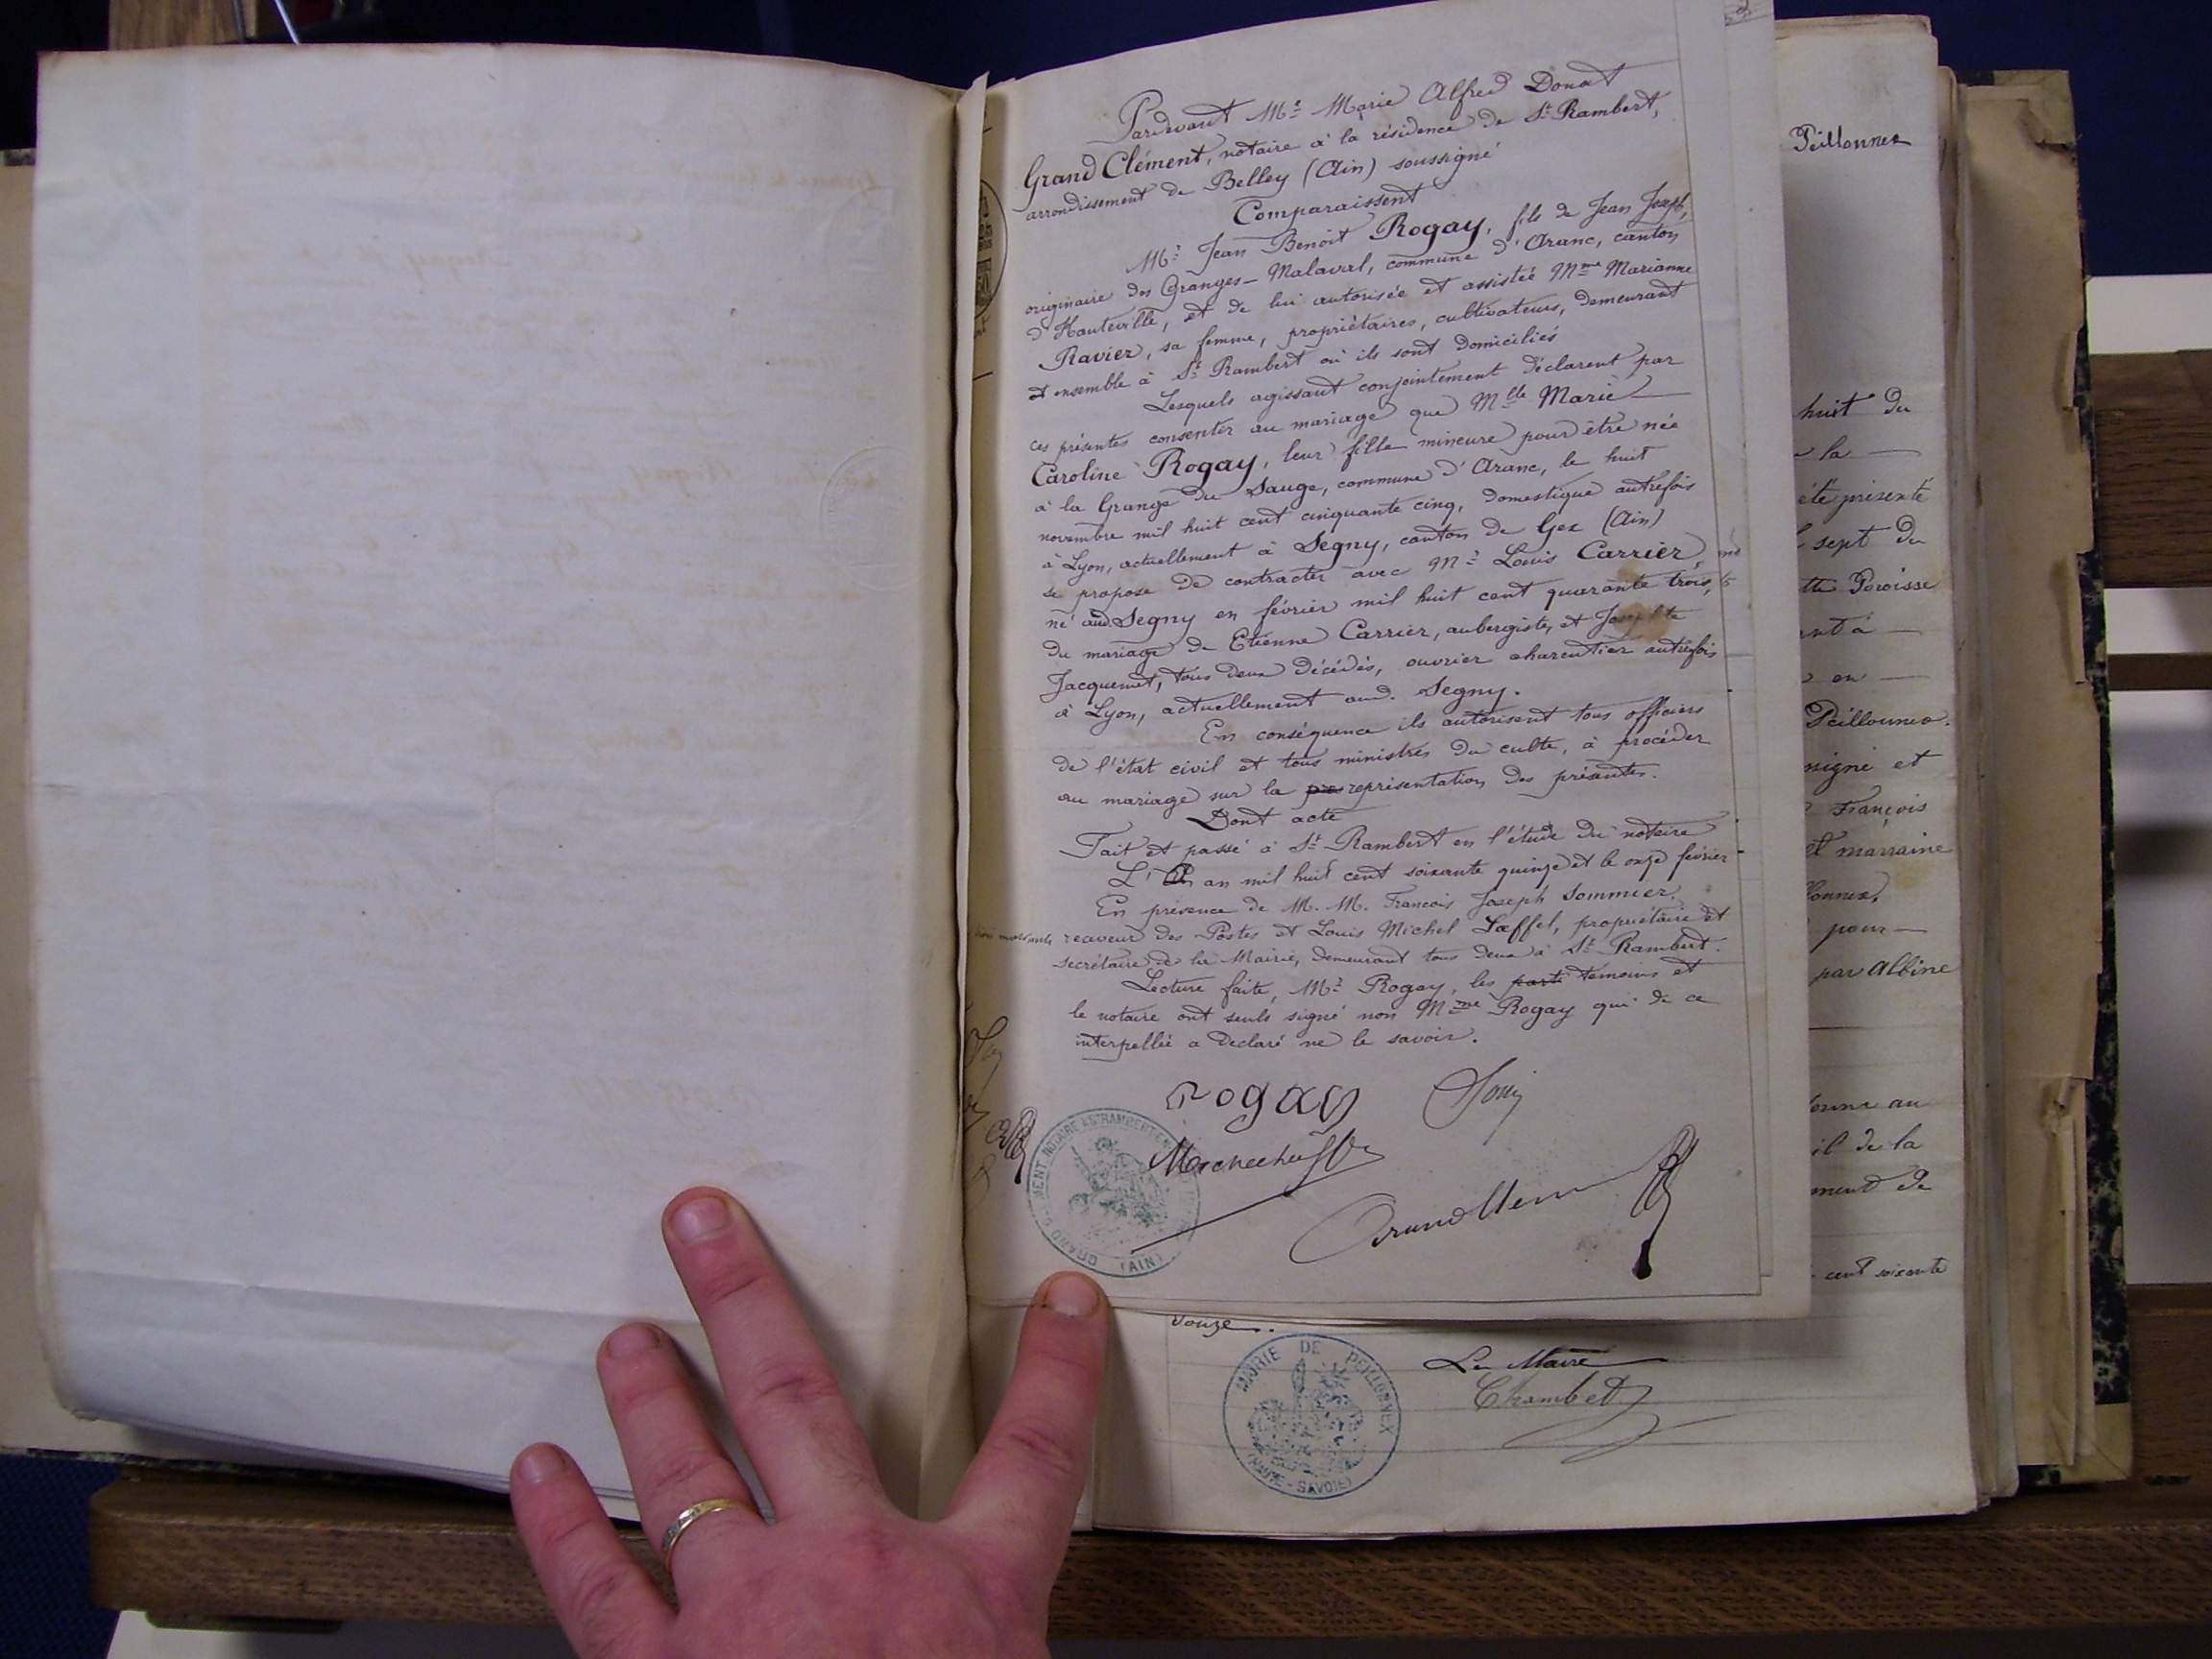 Pardevant Me Marie Alfred Donat
Grand Clément, notaire à la résidence de St Rambert,
arrondissement de Belley (Ain) soussigné
Comparaissent
Mr Jean Benoit Rogay, fils de Jean Joseph,
originaire des Granges-Malaval, commune d'Aranc, canton
d'Hauteville, et de lui autorisée et assistée Mme Marianne
Ravier, sa femme, propriétaires, cultivateurs, demeurant
et ensemble à St Rambert où ils sont domiciliés
Lesquels agissant conjointement déclarent par
ces présentes consentir au mariage que Mlle Marie
Caroline Rogay, leur fille mineure pour être née
à la Grange du Sauge, commune d'Aranc, le huit
novembre mil huit cent cinquante cinq, domestique autrefois
à Lyon, actuellement à Segny, canton de Gex (Ain)
se propose de contracter avec Mr Louis Carrier,
né aud. Segny en février mil huit cent quarante trois,
du mariage de Etienne Carrier, aubergiste, et Josephte
Jacquemet, tous deux décédés, ouvrier charentier autrefois
à Lyon, actuellement aud. Segny.
En conséquence ils autorisent tous officiers
de l'état civil et tous ministres du culte, à procéder
au mariage sur la représentation des présentes.
Dont acte
Fait et passé à St Rambert en l'étude du notaire
L'an mil huit cent soixante quinze et le onze février
En présence de M. M. Francois Joseph Sommier,
receveur des Postes et Louis Michel Lœffel, propriétaire et
secrétaire de la Mairie, demeurant tous deux à St Rambert.
Lecture faite, Mr Rogay, les parti temoins et
le notaire ont seuls signé non Mme Rogay qui de ce
interpellée a declaré ne le savoir.
rogay
GRAND CLEMENT NOTAIRE A ST RAMBERT EN
(AIN)
Peillonnex
huit du
la
été présenté
sept du
tte Paroisse
ant à
en
Peillonnex.
signé et
François
et marraine
llonnex,
pour
par Albine
onne au
il de la
ment de
cent soixante
douze.
MAIRIE DE PEILLONNEX
HAUTE-SAVOIE
Le Maire
Chambet